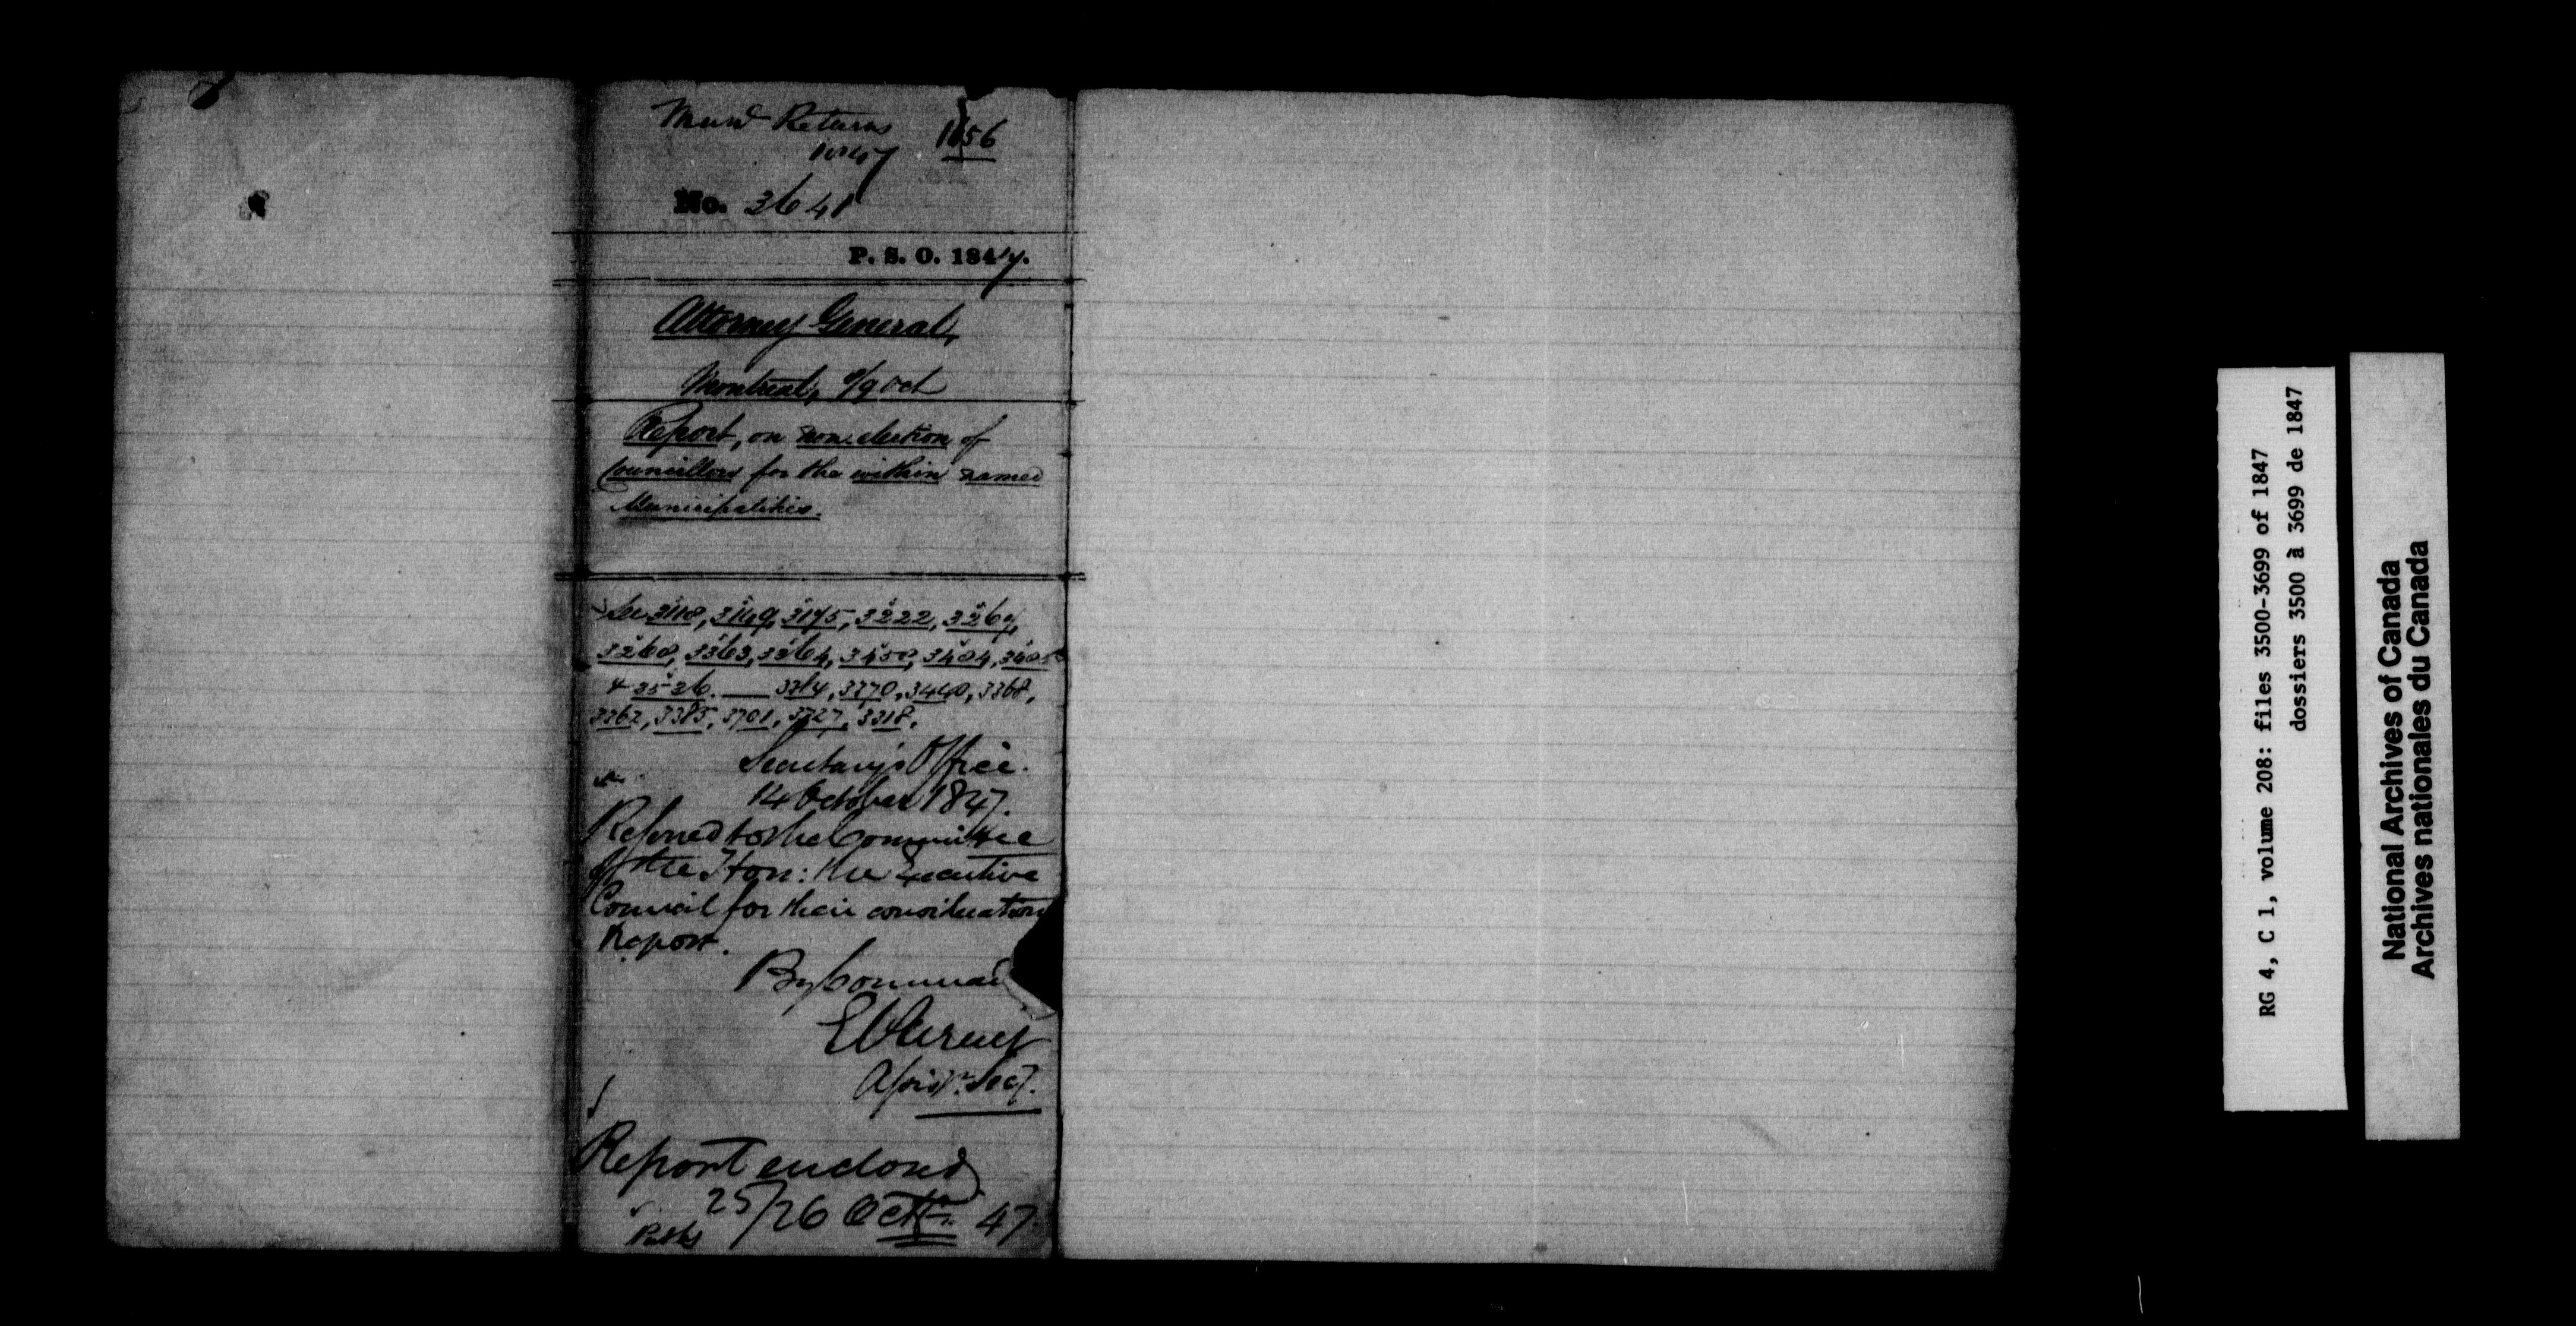 Returns
1847
1656
No. 3641
P. S. O. 1847.
Attorney General,
Montreal, 9 Oct
Report, on non-election of
Councillors for the within named
Municipalities.
See 3118, 3169, 3175, 3222, 3267,
3268, 3363, 3364, 3450, 3484, 3485
& 35-36. 3314, 3370, 3440, 3368,
3362, 3385, 3701, 3727, 3318.
Secretary's Office.
14 October 1847.
Referred to the Committee
of the Hon: the Executive
Council for their consideration
Report.
By Command
Assist. Secy.
Report enclosed
25/26 Octr. 47
RG 4, C 1, volume 208: files 3500-3699 of 1847
dossiers 3500 à 3699 de 1847
National Archives of Canada
Archives nationales du Canada